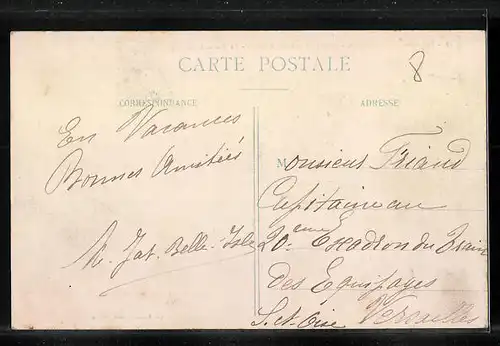 CARTE POSTALE
8
CORRESPONDANCE
ADRESSE
En Vacances
Bonnes Amitiés
Belle-Isle
Monsieur Friand
Capitaine au
20eme Escadron du Train
des Equipages
S. et Oise Versailles